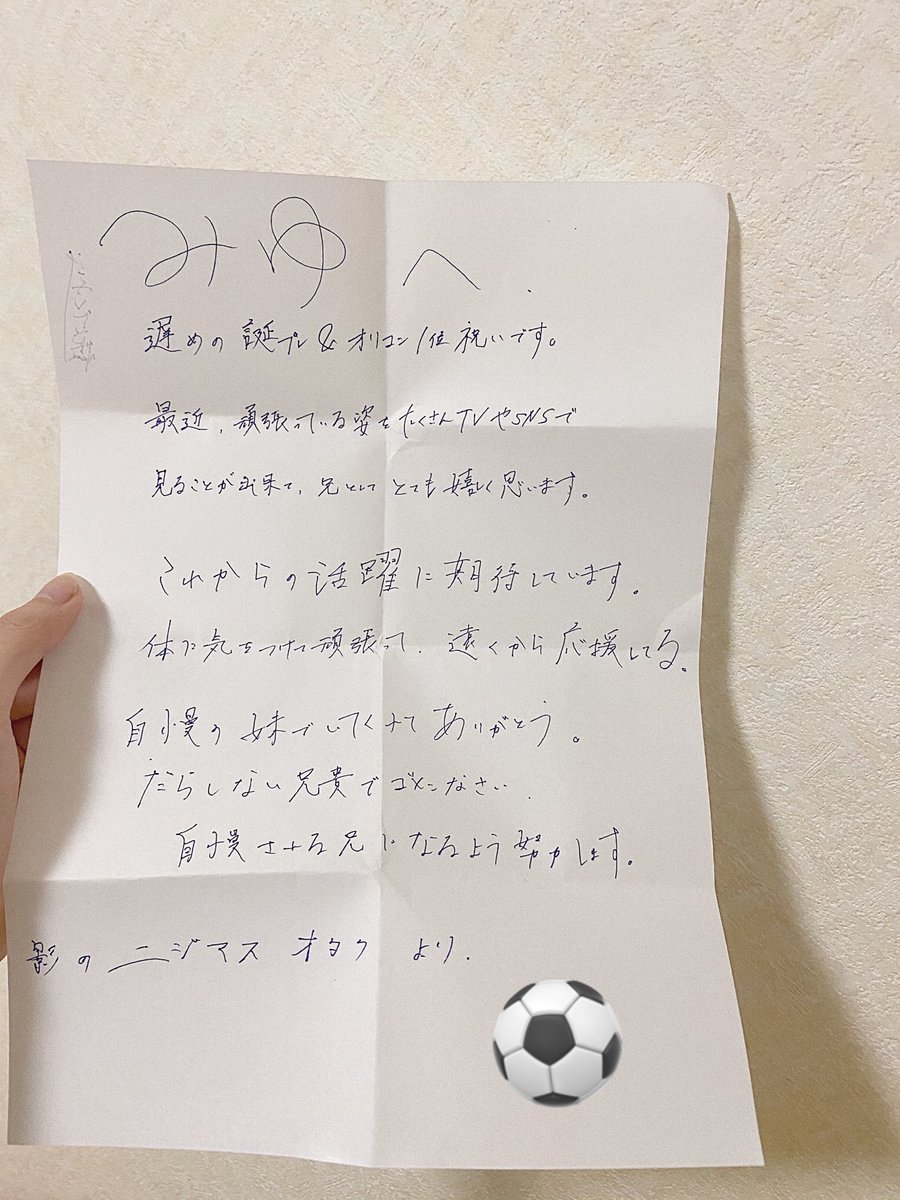 みゆへ
遅めの誕プレ&オリコン1位祝いです。
最近、頑張っている姿をたくさんTVやSNSで
見ることが出来て、兄としてとても嬉しく思います。
これからの活躍に期待しています。
体に気をつけて頑張って、遠くから応援してる。
自慢の妹でいてくれてありがとう。
だらしない兄貴でゴメンなさい.
自慢される兄になるよう努力します。
影のニジマスオタクより.